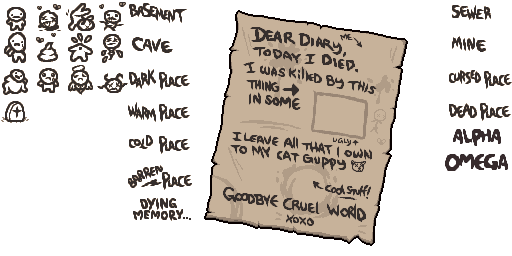 BASEMENT
CAVE
DARK PLACE
WARM PLACE
COLD PLACE
BARREN PLACE
DYING
MEMORY...
DEAR DIARY,
ME
TODAY I DIED.
I WAS KILLED BY THIS
THING
IN SOME
UGLY
I LEAVE ALL THAT I OWN
TO MY CAT GUPPY
COOL STUFF!
GOODBYE CRUEL WORLD
XOXO
SEWER
MINE
CURSED PLACE
DEAD PLACE
ALPHA
OMEGA